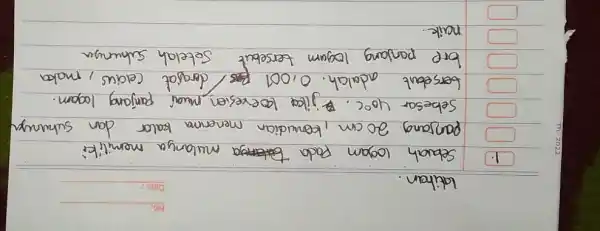 No.
Date.
Latihan.
1. Sebuah logam pada mulanya memiliki
panjang 20 cm, kemudian menerima kalor dan suhunya
sebesar 40°C. jika koevesien muai panjang logam
tersebut adalah. 0,001 / derajat celcius, maka
brp panjang logam tersebut setelah suhunya
naik.